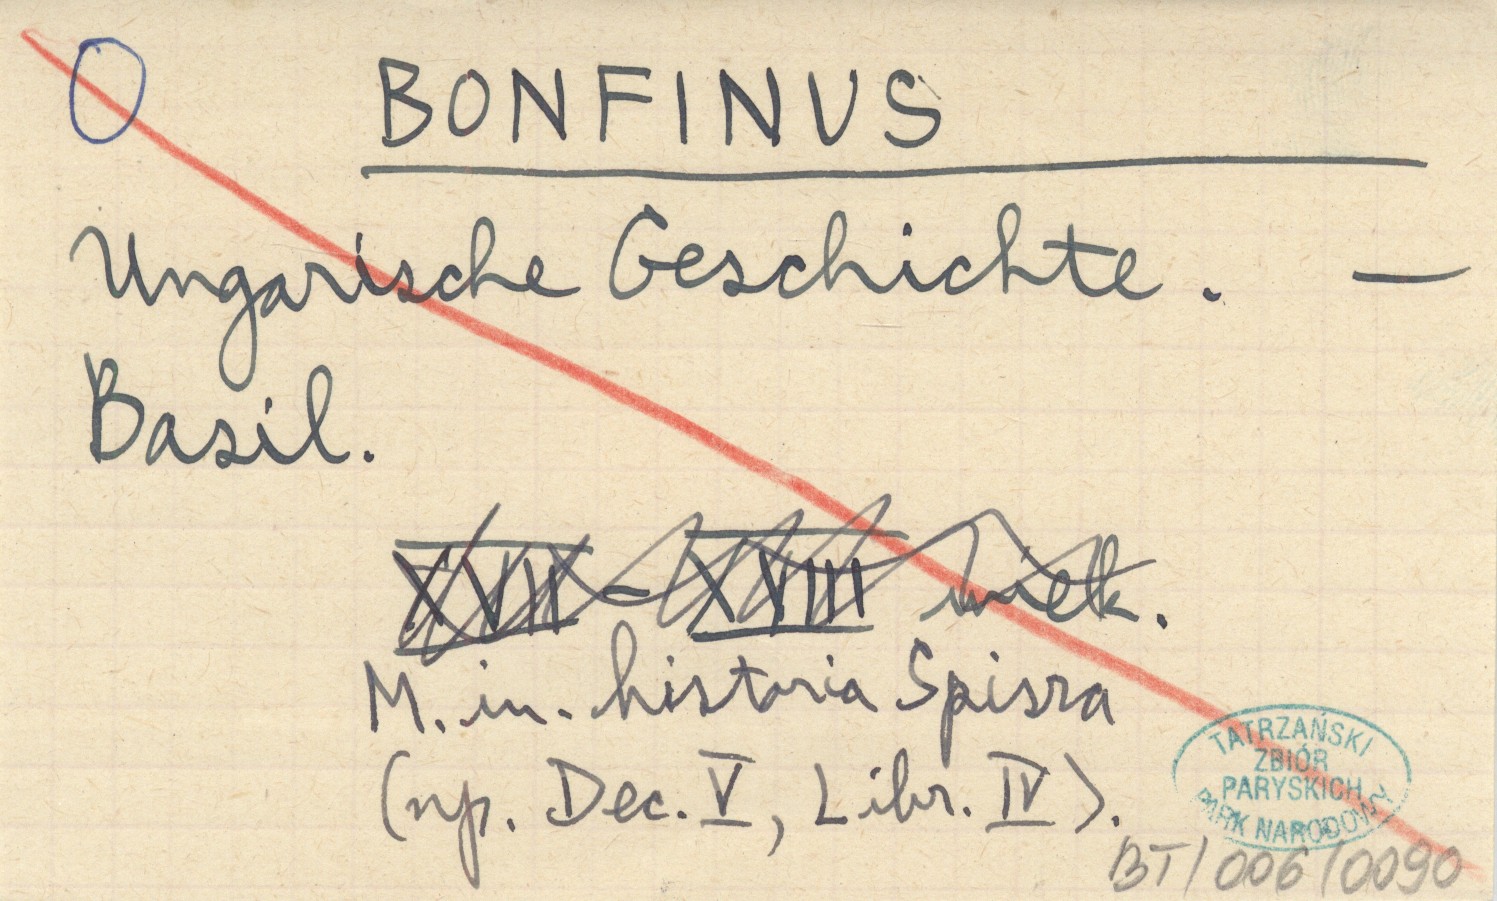 O
BONFINUS
Ungarische Geschichte. —
Basil.
XVII - XVIII wiek.
M. in. historia Spisza
(np. Dec. V, Libr. IV).
TATRZAŃSKI
ZBIÓR
PARYSKICH
PARK NARODOWY
BT/006/0090